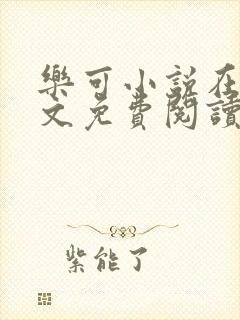 樂可小說在
文免費閱讀
紫能了